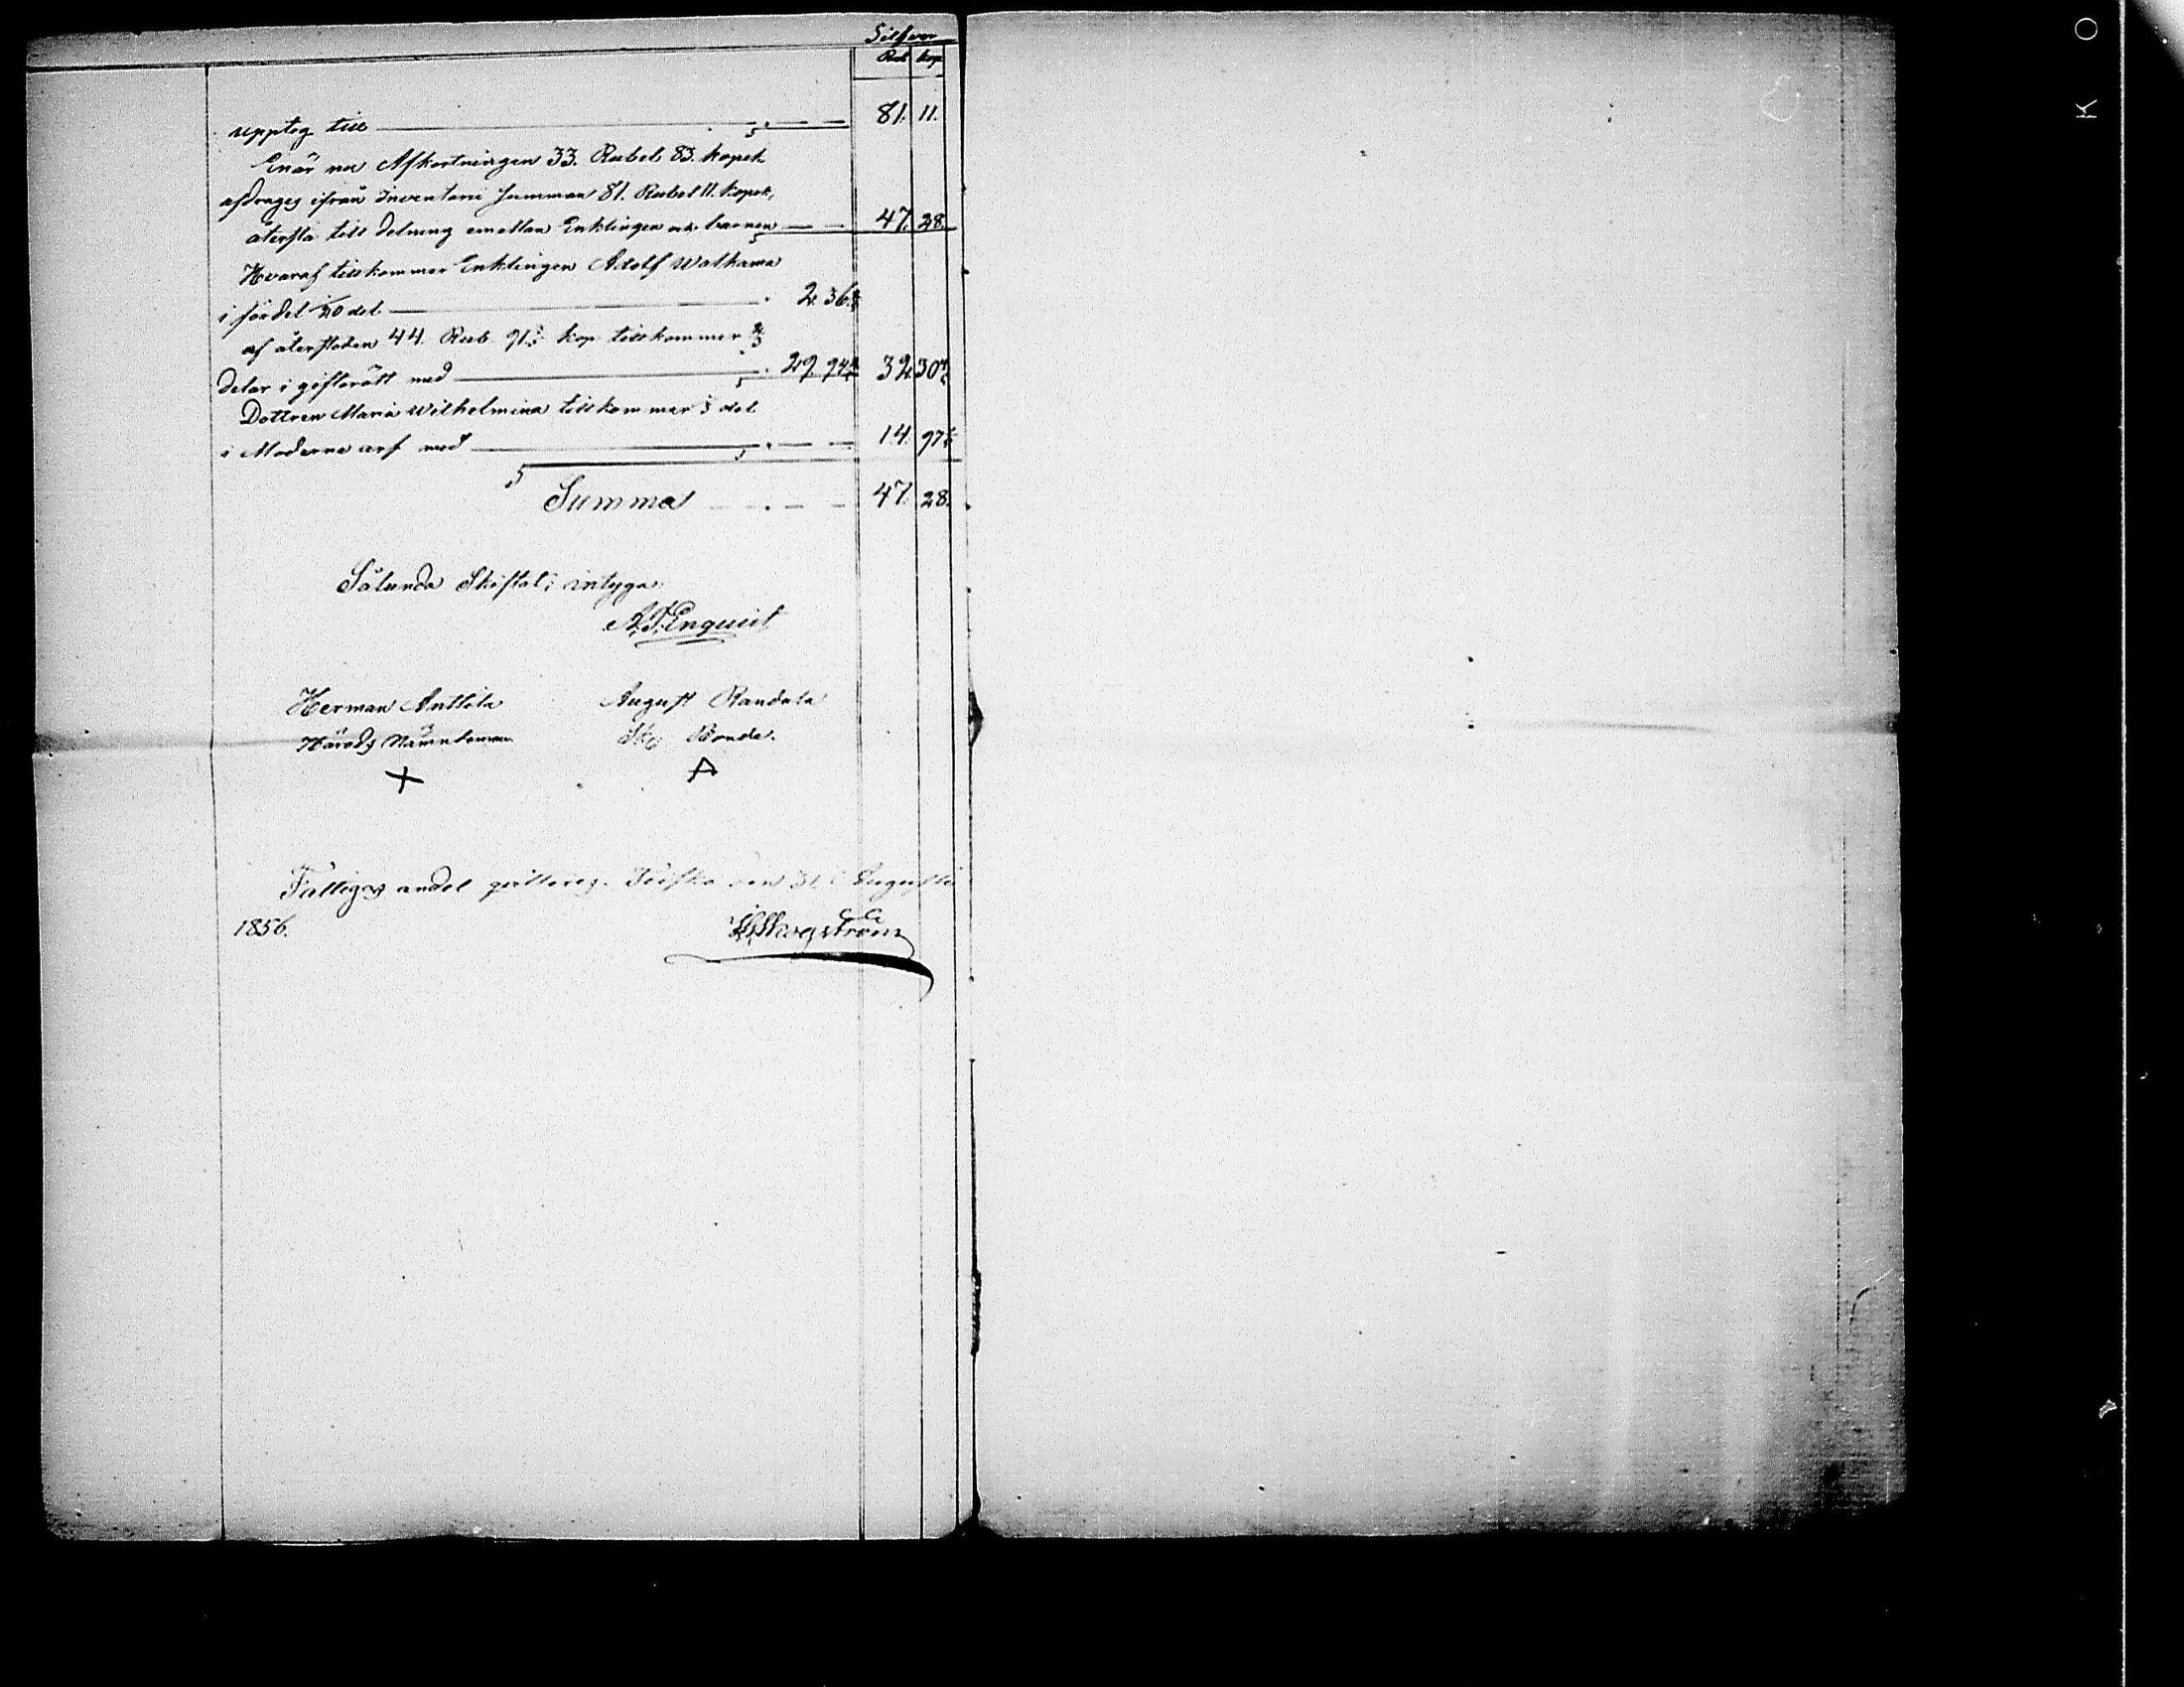 Silfver
Rub kop
upptog till 81. 11.
Enär nu Afkortningen 33. Rubel 83. kopek.
afdrages ifrån Inventarii Summan 81. Rubel 11. kopek,
återstå till delning emellan Enklingen och barnen 47. 28.
Hvaraf tillkommer Enklingen Adolf Walkama
i fördel 1/20 del 2. 36
af återstoden 44. Rub. 91 kop tillkommer 2/3
delar i giftorätt med 29. 94 32. 30
Dottren Maria Wilhelmina tillkommer 1/3 del
i Moderne arf med 14. 97
Summa 47. 28.
Sålunda Skiftat; intyga
Enquist
Herman Anttila August Randala
Härads Nämndeman Bonde.
Fattiges andel qvitteras. den 31 Augusti
1856.
K O